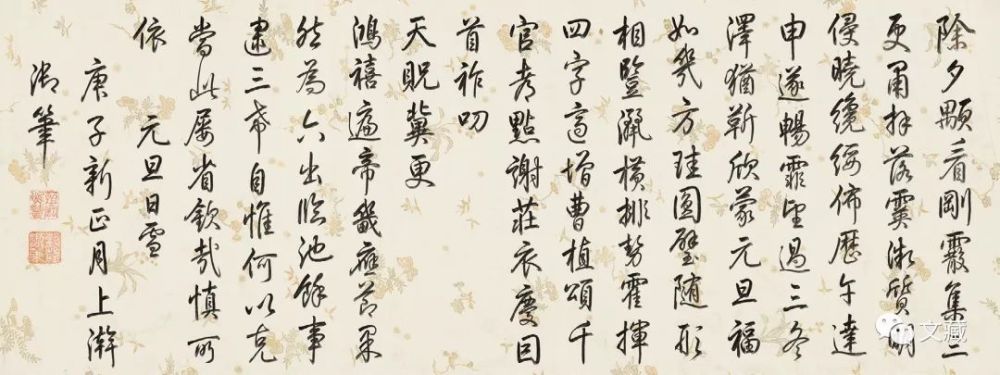 除夕顒看剛霰集三
更甫拜落霙微質明
侵曉纔綏佈歷午達
申遂暢霏望過三冬
澤猶靳欣蒙元旦福
如幾方珪圓璧隨形
相豎灑橫排勢霍揮
四字增曹植頌千
官考點謝莊衣慶因
首祚叨
天貺冀更
鴻禧遍帝畿應節果
然為六出臨池餘事
建三希自惟何以克
當此屢省欽哉慎所
依 元旦日雪
庚子新正月上澣
御筆
文藏